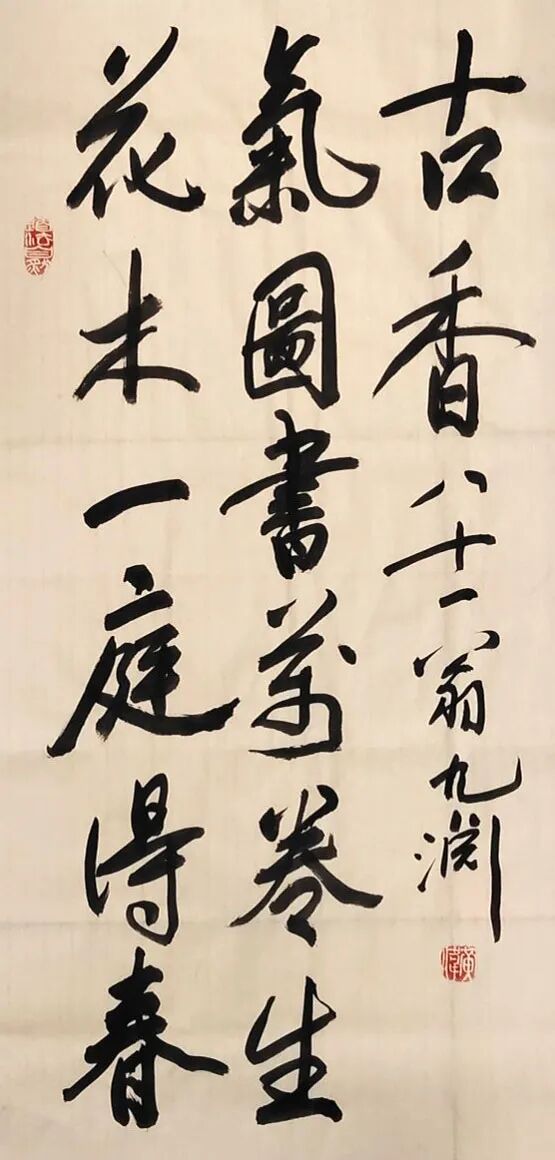 花木一庭得春
氣圖書萬卷生
古香 八十一翁九淵